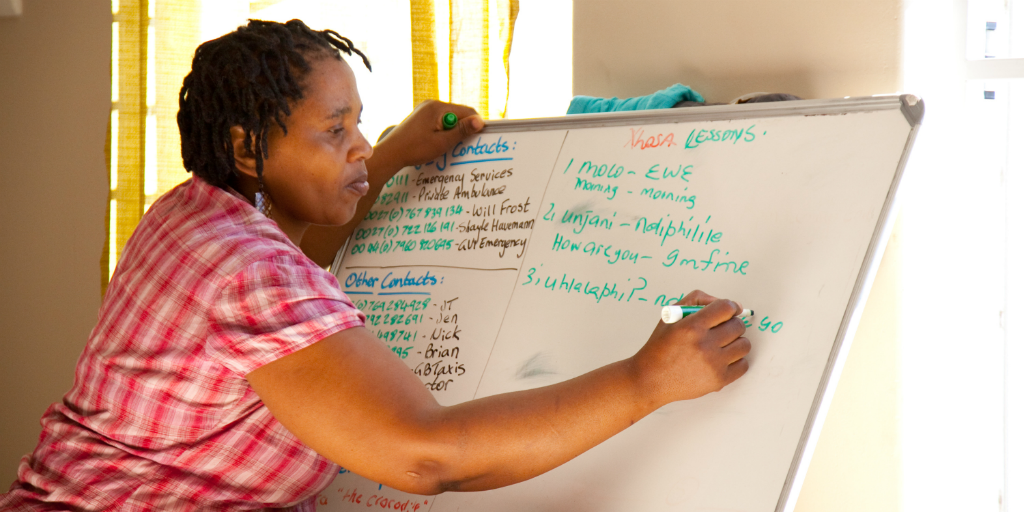 Contacts:
0111 - Emergency Services
82911 - Private Ambulance
0027(0) 767 839 134 - Will Frost
0027(0) 722 126 191 - Shayle Havemann
00 44(0) 7960 - GVI Emergency
Other Contacts:
(0)769284928 - JT
792282691 - Jen
498741 - Nick
- Brian
- GBTaxis
"the
Xhosa LESSONS.
1 MOLO - EWE
Morning - morning
2, unjani - Ndiphilile
How are you - I'm fine
3, uhlalaphi? -